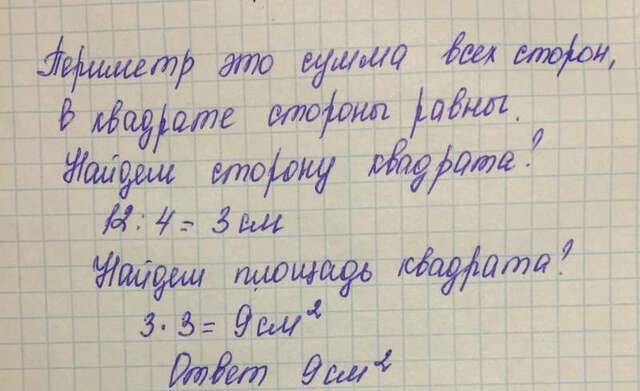 Периметр это сумма всех сторон,
в квадрате стороны равны.
Найдем сторону квадрата?
12 : 4 = 3 см
Найдем площадь квадрата?
3 · 3 = 9 см²
Ответ 9 см²